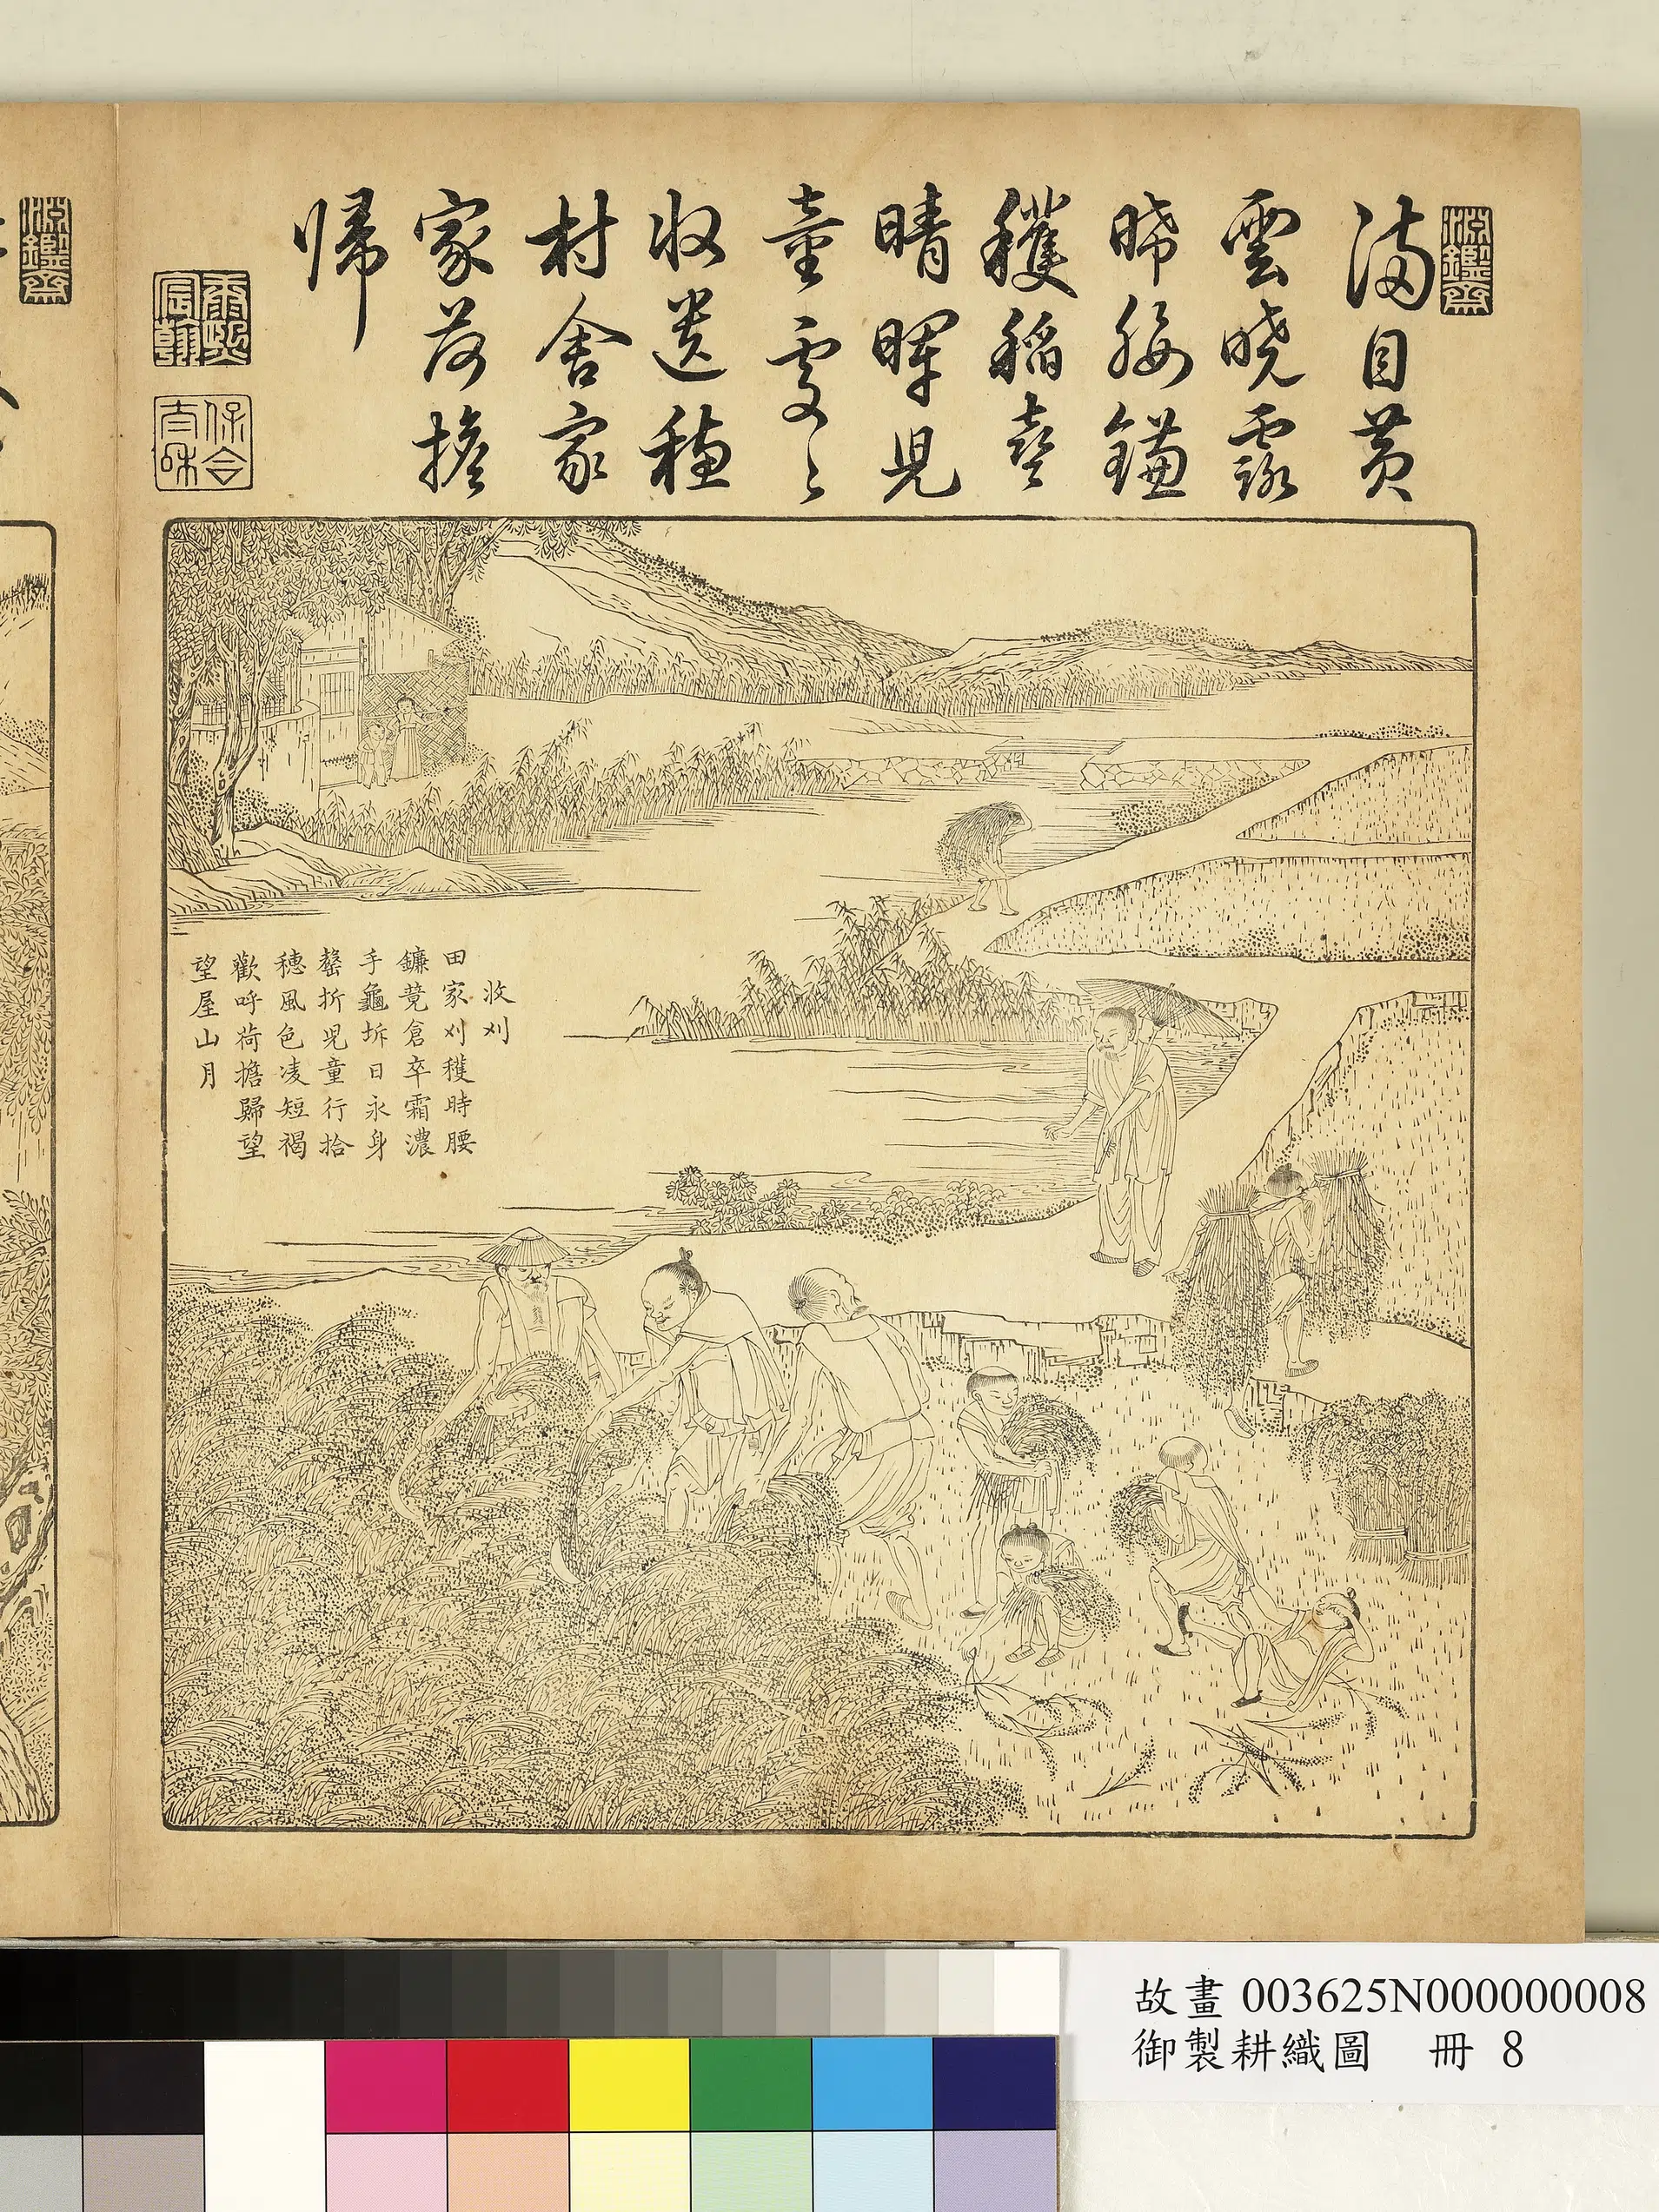 淵鑑齋
滿目黃
雲曉露
晞腰鎌
穫稻喜
晴暉兒
童處〻
收遺穗
村舍家
家荷擔
歸
康熙宸翰
保合太和
收刈
田家刈穫時腰
鐮競倉卒霜濃
手龜坼日永身
罄折兒童行拾
穗風色凌短褐
歡呼荷擔歸望
望屋山月
淵鑑齋
故畫 003625N000000008
御製耕織圖 冊 8